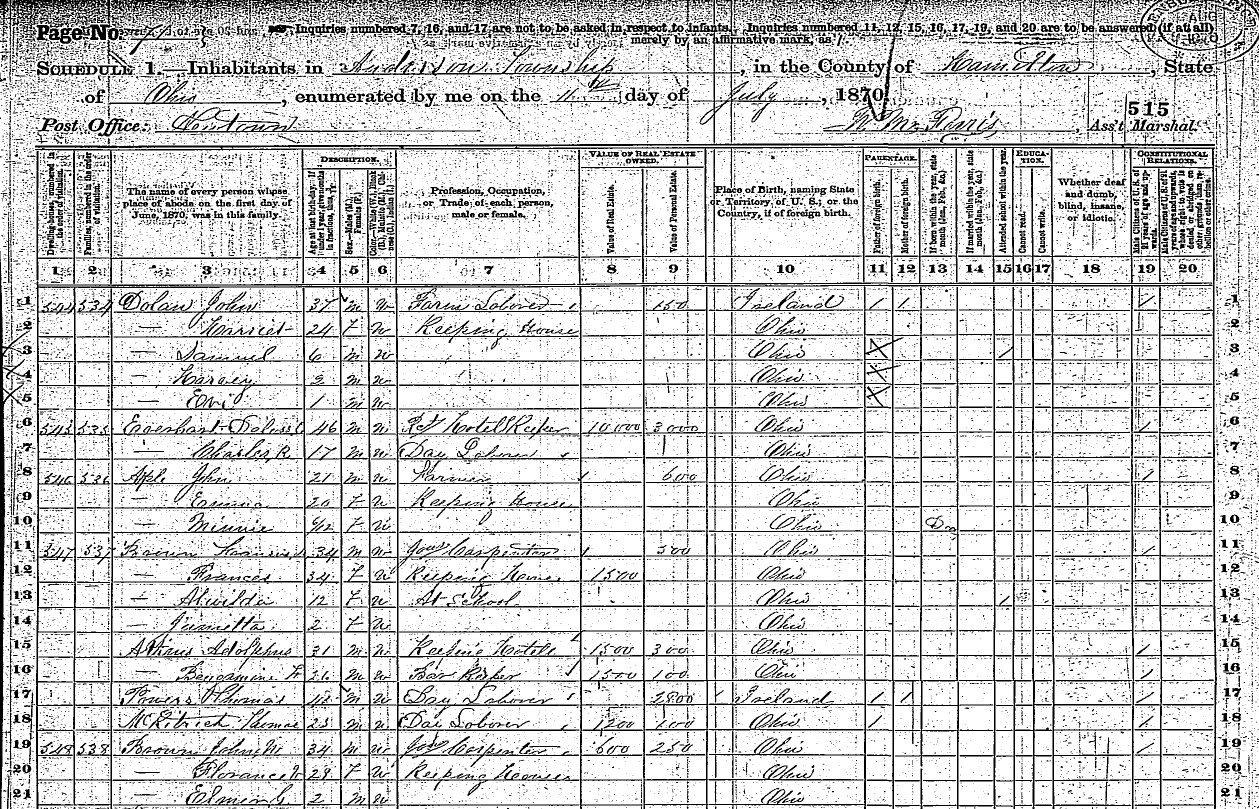 Page No. Inquiries numbered 7, 16, and 17 are not to be asked in respect to infants. Inquiries numbered 11, 12, 15, 16, 17, 19, and 20 are to be answered (if at all)
merely by an affirmative mark, as /.
SCHEDULE 1.—Inhabitants in Anderson Township, in the County of Hamilton, State
of Ohio, enumerated by me on the 11th day of July, 1870.
515
Post Office: Newtown Ass't Marshal.
DESCRIPTION. VALUE OF REAL ESTATE OWNED. PARENTAGE. EDUCATION. CONSTITUTIONAL RELATIONS.
Dwelling-houses, numbered in the order of visitation. Families, numbered in the order of visitation. The name of every person whose place of abode on the first day of June, 1870, was in this family. Sex.—Males (M.), Females (F.) Profession, Occupation, or Trade of each person, male or female. Value of Real Estate. Value of Personal Estate. Place of Birth, naming State or Territory of U. S.; or the Country, if of foreign birth. Father of foreign birth. Mother of foreign birth. If born within the year, state month (Jan., Feb., &c.) If married within the year, state month (Jan., Feb., &c.) Attended school within the year. Cannot read. Cannot write. Whether deaf and dumb, blind, insane, or idiotic.
1 2 3 4 5 6 7 8 9 10 11 12 13 14 15 16 17 18 19 20
1 544 534 Dolan John 37 M W Farm Laborer 150 Ireland 1 1 1 1
2 — Harriet 24 F W Keeping House Ohio 2
3 — Samuel 6 M W Ohio 1 3
4 — Harvey 3 M W Ohio 4
5 — 1 M W Ohio 5
6 545 535 Everhart 46 M W Ret Hotel Keeper 10000 3000 Ohio 1 6
7 — Charles R. 17 M W Day Laborer Ohio 7
8 546 536 Aple John 21 M W Farmer 600 Ohio 1 8
9 — Emma 20 F W Keeping House Ohio 9
10 — Minnie F W Ohio Dec 10
11 547 537 Brown 34 M W Jour Carpenter 500 Ohio 1 11
12 — Frances 34 F W Keeping House 1500 Ohio 12
13 — Alwilda 12 F W At School Ohio 1 13
14 — Junietta 2 F W Ohio 14
15 Adolphus 31 M W Keeping Hotele 1500 300 Ohio 1 15
16 — Bengamine F 26 M W Bar Keeper 1500 100 Ohio 1 16
17 Powers Thomas M W Day Laborer 2800 Ireland 1 1 1 17
18 McKitrick Thomas 23 M W Day Laborer 1200 100 Ohio 1 1 18
19 548 538 Brown John W 34 M W Jour Carpenter 600 250 Ohio 1 19
20 — Florance 28 F W Keeping House Ohio 20
21 — Elmer G 2 M W Ohio 21